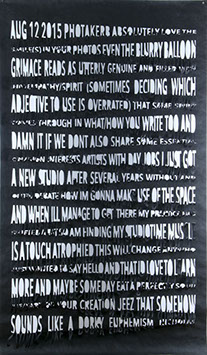 AUG 12 2015 PHOTAKERB ABSOLUTELY LOVE THE
IN YOUR PHOTOS EVEN THE BLURRY BALLOON
GRIMACE READS AS UTTERLY GENUINE AND FILLED WITH
SPIRIT (SOMETIMES DECIDING WHICH
ADJECTIVE TO USE IS OVERRATED) THAT SAME
COMES THROUGH IN WHAT/HOW YOU WRITE TOO AND
DAMN IT IF WE DONT ALSO SHARE SOME ESSENTIAL
INTERESTS ARTISTS WITH DAY JOBS I JUST GOT
A NEW STUDIO AFTER SEVERAL YEARS WITHOUT AND
HOW IM GONNA MAKE USE OF THE SPACE
AND WHEN ILL MANAGE TO GET THERE MY PRACTICE
AM FINDING MY STUDIOTIME
IS A TOUCH ATROPHIED THIS WILL CHANGE
WANTED TO SAY HELLO AND THAT ID LOVE TO LEARN
MORE AND MAYBE SOMEDAY EAT A PERFECT
OF YOUR CREATION JEEZ THAT SOMEHOW
SOUNDS LIKE A DORKY EUPHEMISM